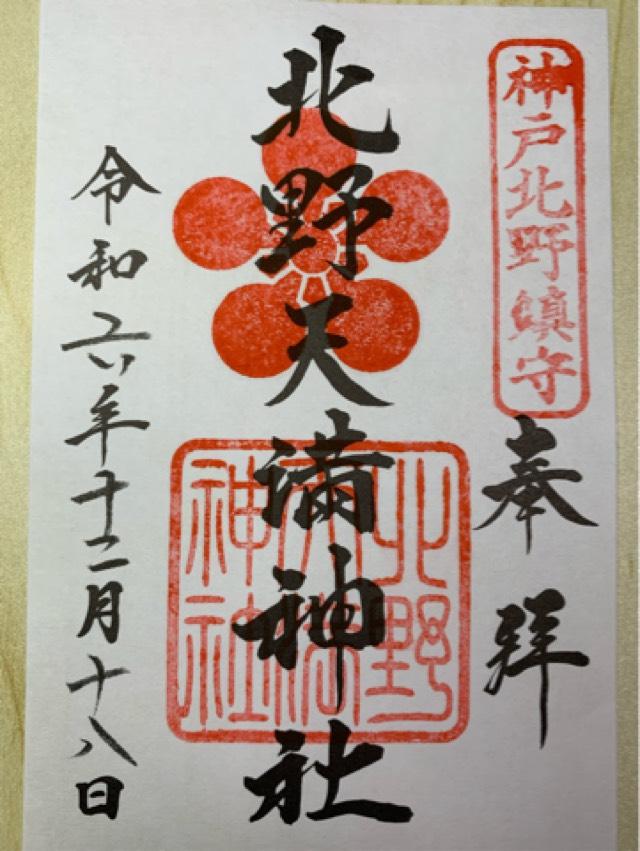 神戸北野鎮守
奉拝
北野天満神社
北野
天満
神社
令和六年十二月十八日